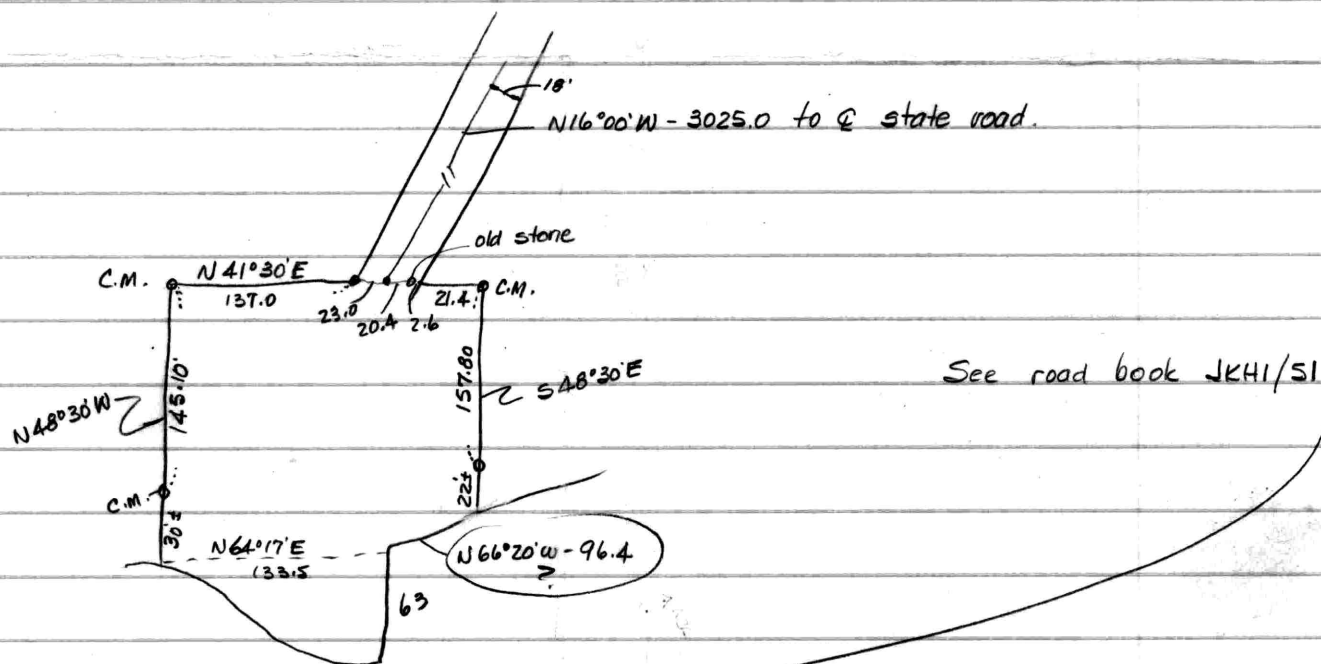 18'
N16°00'W - 3025.0 to ℄ state road.
old stone
C.M.
N 41°30'E
137.0
23.0
20.4
2.6
21.4
C.M.
N48°30'W
145.10'
157.80
S48°30'E
See road book JKH1/51
C.M.
30'±
22±
N64°17'E
133.5
N66°20'W - 96.4
?
63